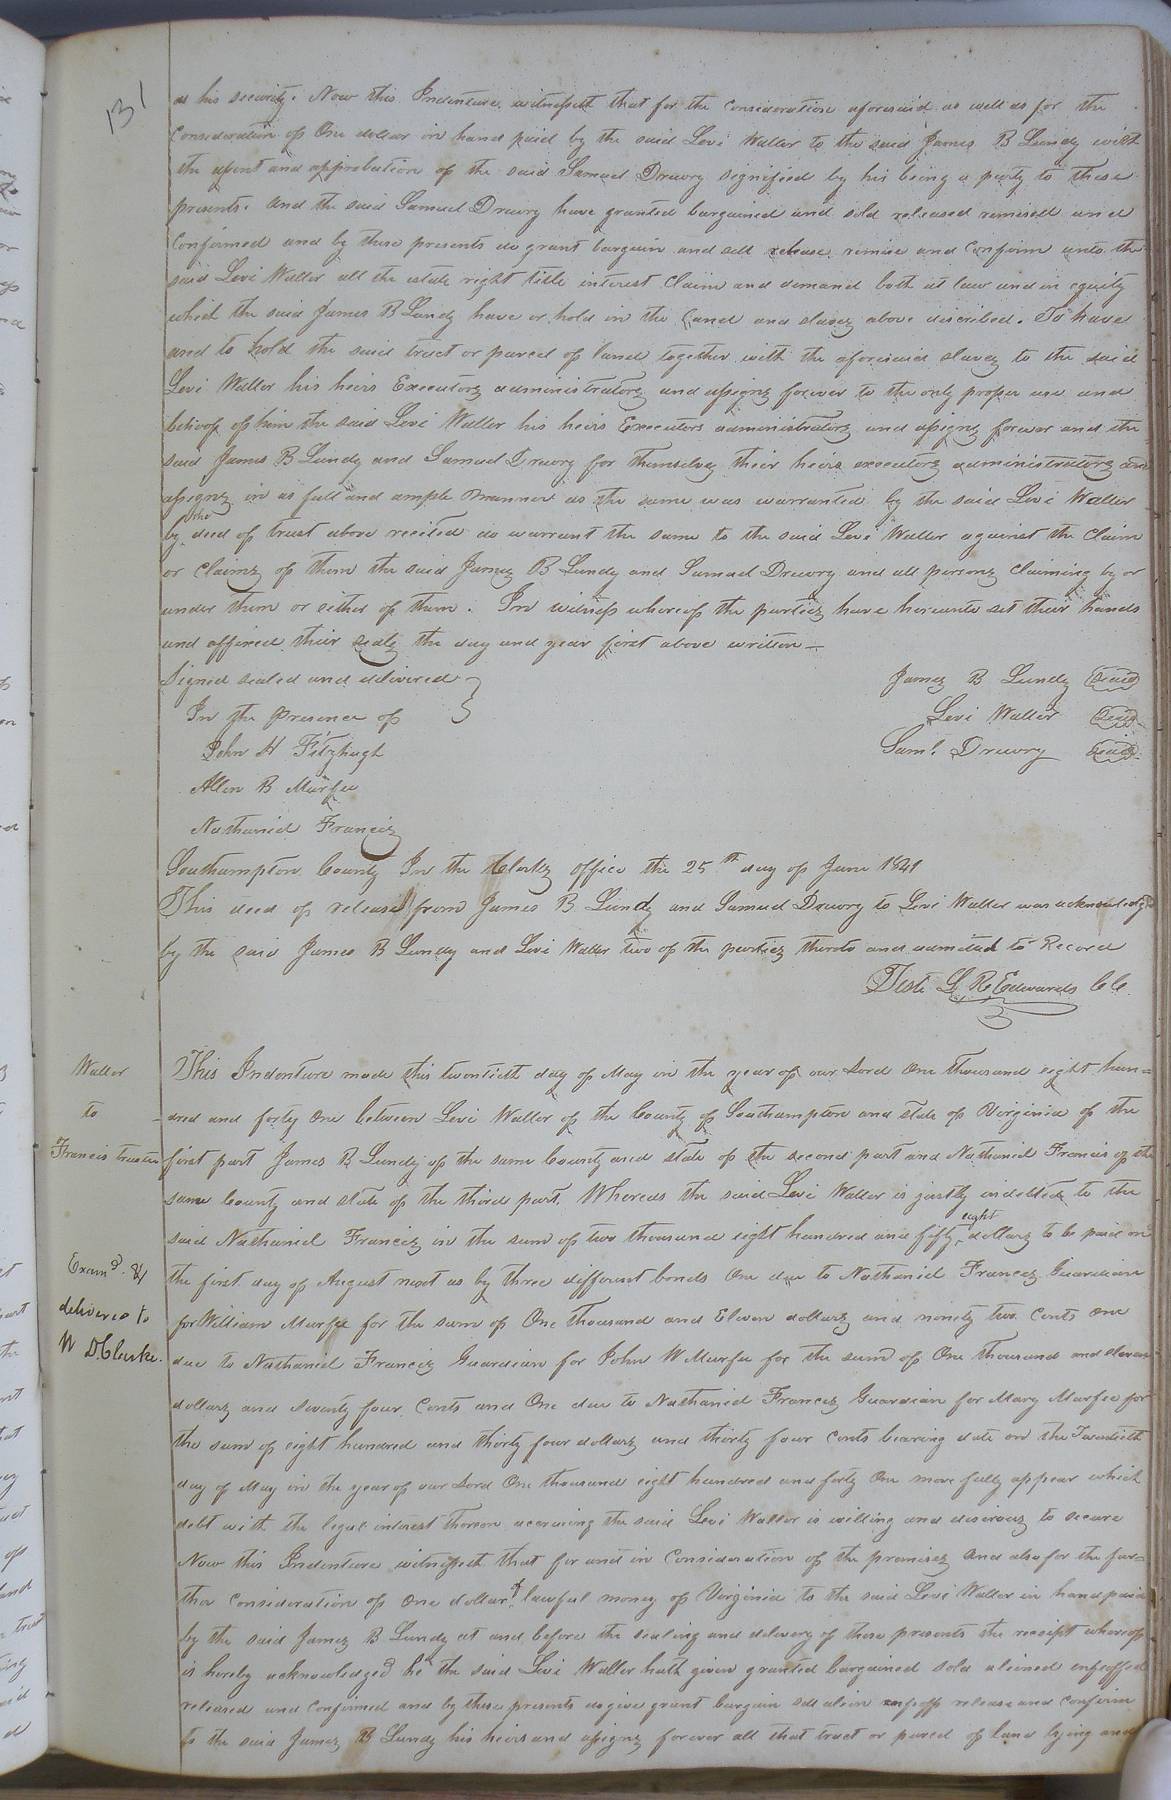 131
as his security. Now this Indenture witnesseth that for the consideration aforesaid as well as for the
Consideration of One dollar in hand paid by the said Levi Waller to the said James B Lundy with
the assent and approbation of the said Samuel Drewry signified by his being a party to these
presents. and the said Samuel Drewry have granted bargained and sold released remised and
Confirmed and by these presents do grant bargain and sell release remise and Confirm unto the
said Levi Waller all the estate right title interest Claim and demand both at law and in equity
which the said James B Lundy have or hold in the land and slaves above discribed. To have
and to hold the said tract or parcel of land together with the aforesaid slaves to the said
Levi Waller his heirs Executors administrators and assigns forever to the only proper use and
behoof of him the said Levi Waller his heirs Executors administrators and assigns forever and the
said James B Lundy and Samuel Drewry for themselves their heirs executors administrators and
assigns in as full and ample Manner as the same was warranted by the said Levi Waller
by the deed of trust above recited do warrant the same to the said Levi Waller against the Claim
or Claims of them the said James B Lundy and Samuel Drewry and all persons Claiming by or
under them or either of them. In witness whereof the parties have hereunto set their hands
and affixed their seals the day and year first above written —
Signed sealed and delivered } James B Lundy Seal
In the Presence of Levi Waller Seal
John H Fitzhugh Saml. Drewry Seal
Allen B Murfee
Nathaniel Francis
Southampton County In the Clerks office the 25th day of June 1841
This deed of release from James B Lundy and Samuel Drewry to Levi Waller was acknowledgd
by the said James B Lundy and Levi Waller two of the parties thereto and admited to Record
Teste L R Edwards CC
Waller
to
Francis trustee
This Indenture made this twentieth day of May in the year of our Lord One thousand eight hun=
dred and forty One between Levi Waller of the County of Southampton and state of Virginia of the
first part James B Lundy of the same County and state of the second part and Nathaniel Francis of the
same County and state of the third part. Whereas the said Levi Waller is justly indebted to the
said Nathaniel Francis in the sum of two thousand eight hundred and fifty eight dollars to be paid on
Examd. &
delivered to
W D Clarke.
the first day of August next as by three different bonds One due to Nathaniel Francis Guardian
for William Murfee for the sum of One thousand and Eleven dollars and ninety two Cents One
due to Nathaniel Francis Guardian for John W Murfee for the sum of One thousand and eleven
dollars and seventy four Cents and One due to Nathaniel Francis Guardian for Mary Murfee for
the sum of eight hundred and thirty four dollars and thirty four Cents bearing date on the Twentieth
day of May in the year of our Lord One thousand eight hundred and forty One more fully appear which
debt with the legal interest thereon accruing the said Levi Waller is willing and disirous to secure
Now this Indenture witnesseth that for and in Consideration of the premises and also for the fur=
ther Consideration of One dollar of lawful money of Virginia to the said Levi Waller in hand paid
by the said James B Lundy at and before the sealing and delivery of these presents the receipt whereof
is hereby acknowledged he the said Levi Waller hath given granted bargained sold aliened enfeoffed
released and Confirmed and by these presents do give grant bargain sell alien enfeoff release and Confirm
to the said James B Lundy his heirs and assigns forever all that tract or parcel of land lying and